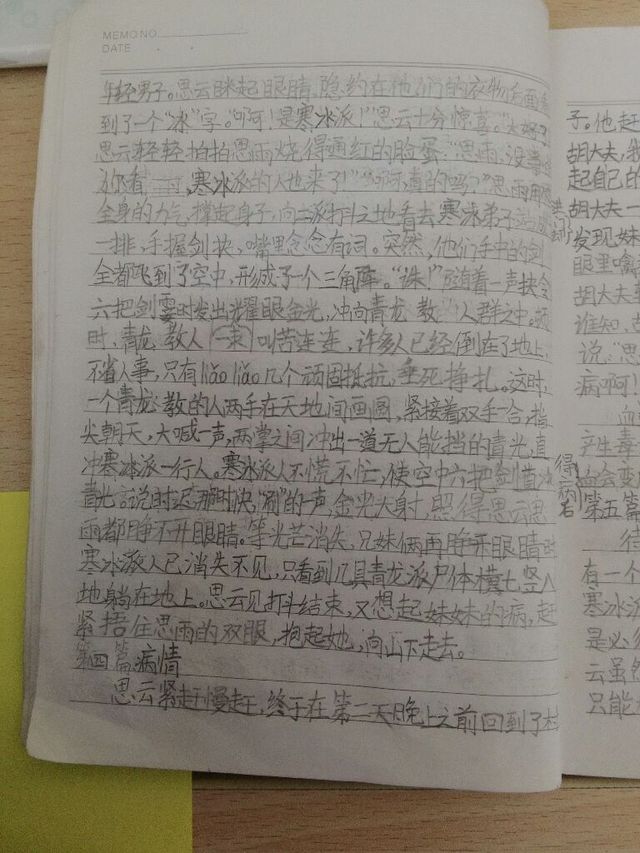 MEMO NO.
DATE
年轻男子。思云眯起眼睛,隐约在他们的衣物后面看
到了一个“冰”字。“啊!是寒冰派!”思云十分惊喜。“太好了
思云轻轻拍拍思雨烧得通红的脸蛋:“思雨,没事
你看,寒冰派的人也来了!”“啊,真的吗?”思雨用
全身的力气,撑起身子,向二派打斗之地看去,寒冰弟子
一排,手握剑诀,嘴里念念有词。突然,他们手中的剑
全都飞到了空中,形成了一个三角阵。“诛!”随着一声
六把剑霎时发出耀眼金光,冲向青龙教的人群之中。
时,青龙教人叫苦连连,许多人已经倒在了地上,
不省人事,只有liáo liáo几个顽固抵抗,垂死挣扎。这时,
一个青龙教的人两手在天地间画圈,紧接着双手一合,指
尖朝天,大喊一声,两掌之间冲出一道无人能挡的青光,直
冲寒冰派一行人。寒冰派人不慌不忙,使空中六把剑
青光,说时迟那时快,“刷”的声,金光大射,照得思云思
雨都睁不开眼睛。等光芒消失,兄妹俩再睁开眼睛时
寒冰派人已消失不见,只看到几具青龙派尸体横七竖八
地躺在地上。思云见打斗结束,又想起妹妹的病,赶
紧捂住思雨的双眼,抱起她,向山下走去。
第四篇病情
思云紧赶慢赶,终于在第二天晚上之前回到了村
子。他赶
胡大夫,我
起自己的
胡大夫一
发现妹
眼里噙
胡大夫
谁知,
说:“思
病啊!
血
产生毒
血会变
第五篇
待
有一个
寒冰派
是必须
云虽然
只能